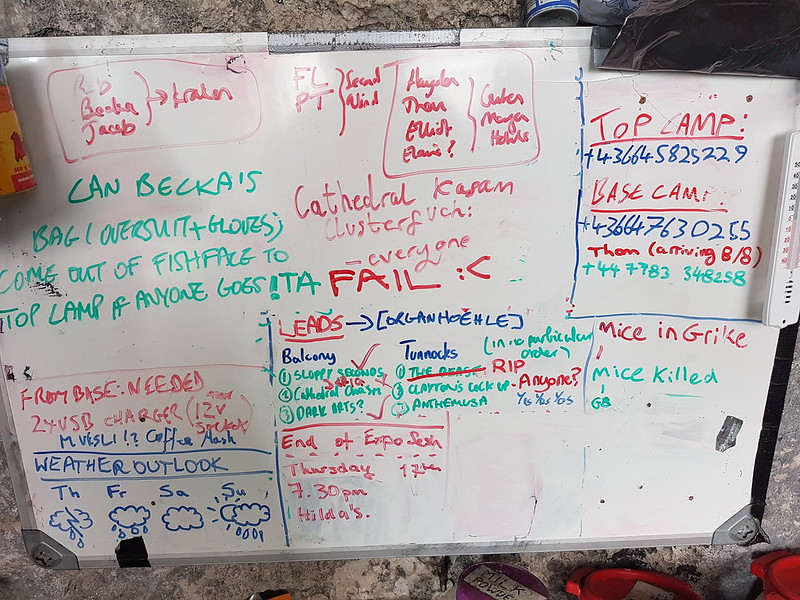 Becka
Jacob
→ Kraken
FL
PT
Second
Wind
Hayden
Thom
Elliott
CAN BECKA'S
BAG (OVERSUIT+GLOVES)
COME OUT OF FISHFACE TO
TOP CAMP IF ANYONE GOES! TA
Cathedral Kasam
Clusterfuck:
- everyone
FAIL :<
TOP CAMP:
+436645825229
BASE CAMP:
+436647630255
Thom (arriving 8/8)
+44 7783 348258
LEADS → [ORGANHOEHLE]
Balcony
① SLOPPY SECONDS
② Cathedral Chasm
③ DARK ARTS?
Tunnocks
(in no particular
order)
① THE BEAST RIP
② CLAYTON'S COCK UP - Anyone?
③ ANTHEMUSA
Mice in Grike
Mice Killed
FROM BASE: NEEDED
2x USB CHARGER (12V
MUESLI!? Coffee
WEATHER OUTLOOK
Th Fr Sa Su
End of Expo Sesh
Thursday 17th
7.30pm
Hilda's.